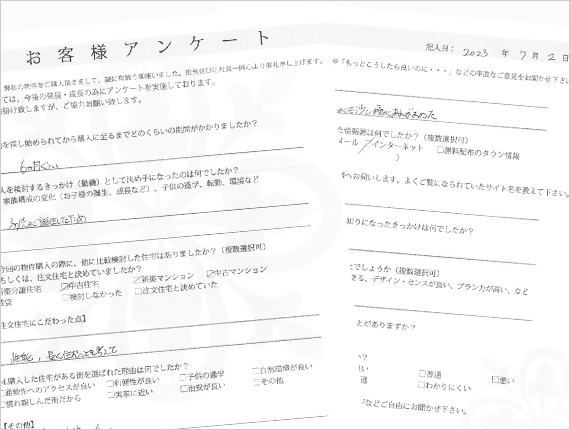 お客様アンケート
記入日： 2023 年 7 月 2 日
弊社の物件をご購入頂きまして、誠に有難う御座いました。担当並びに社員一同心より御礼申し上げます。
ては、今後の発展・成長の為にアンケートを実施しております。
掛け致しますが、ご協力お願い致します。
を探し始められてから購入に至るまでどのくらいの期間がかかりましたか？
6ヵ月ぐらい
入を検討するきっかけ（動機）として決め手になったのは何でしたか？
家族構成の変化（お子様の誕生、成長など）、子供の進学、転勤、環境など
子供が誕生したため
今回の物件購入の際に、他に比較検討した住宅はありましたか？（複数選択可）
もしくは、注文住宅と決めていましたか？
新築分譲住宅 ☑中古住宅 ☑新築マンション ☑中古マンション
賃貸 □検討しなかった □注文住宅と決めていた
注文住宅にこだわった点】
性能、長く住むことを考えて
4.購入した住宅がある街を選ばれた理由は何でしたか？
□通勤先へのアクセスが良い □利便性が良い □子供の通学 □自然環境が良い
□慣れ親しんだ街だから □実家に近い □治安が良い □その他
【その他】
や「もっとこうしたら良いのに・・・」などの率直なご意見をお聞かせ下さい
た情報源は何でしたか？（複数選択可）
メール ☑インターネット □無料配布のタウン情報
）
へお伺いします。よくご覧になられていたサイト名を教えて下さい。
知りになったきっかけは何でしたか？
でしょうか（複数選択可）
きる、デザイン・センスが良い、プラン力が高い、など
とがありますか？
か？
良い □普通 □悪い
通 □わかりにくい
などご自由にお聞かせ下さい。